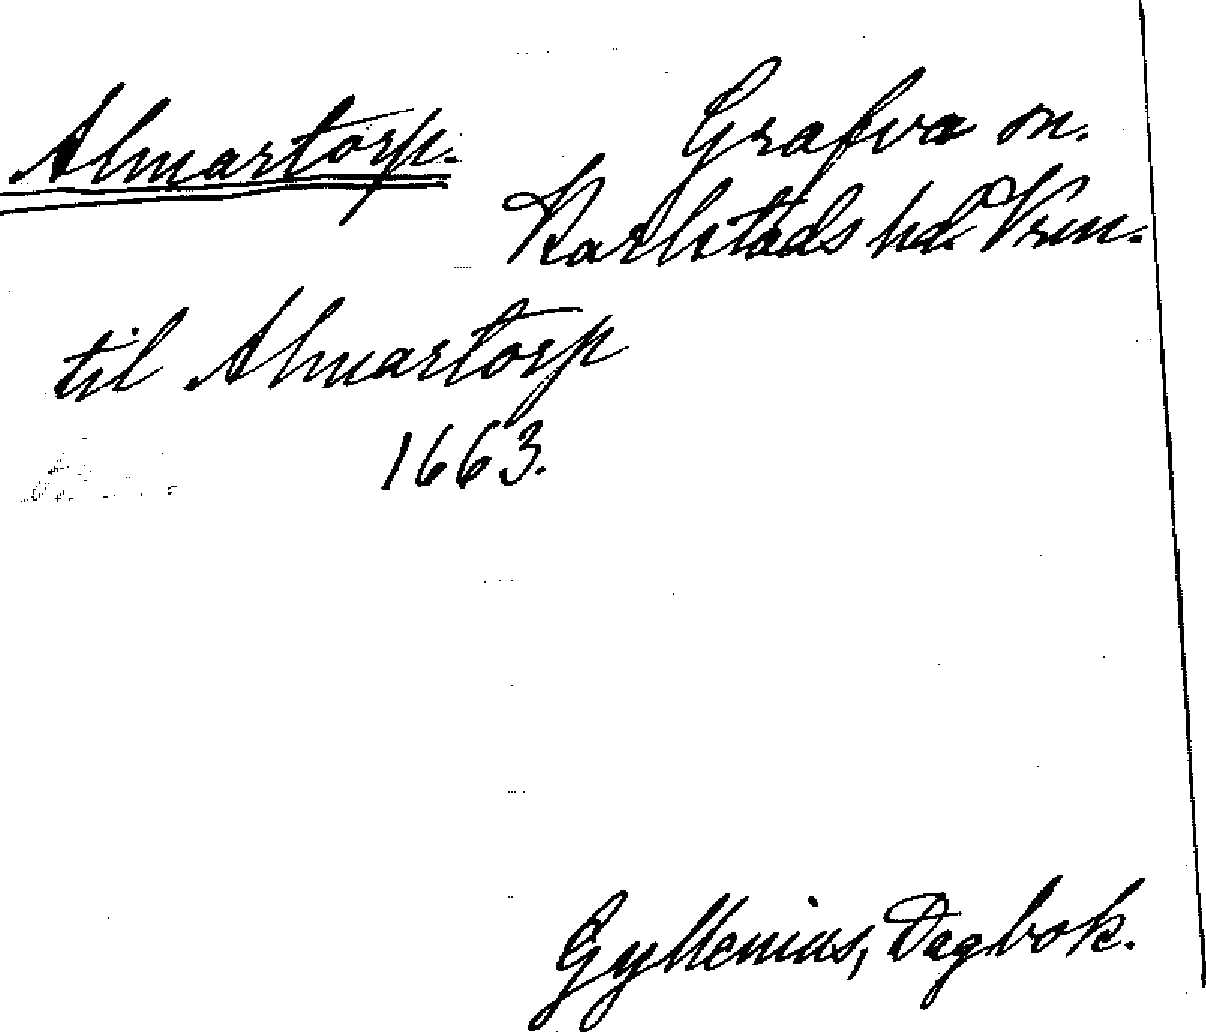 Almartorp.
Grafva sn.
Karlstads hd. Vrm.
til Almartorp
1663.
Gyllenius, Dagbok.